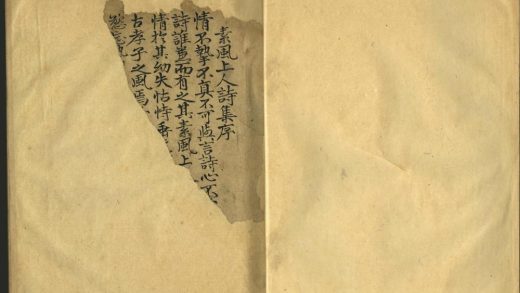 素風上人詩集序
情不摯不真不可與言詩心不
詩誰思而有之其素風上
情於其幼失怙恃
古孝子之風焉